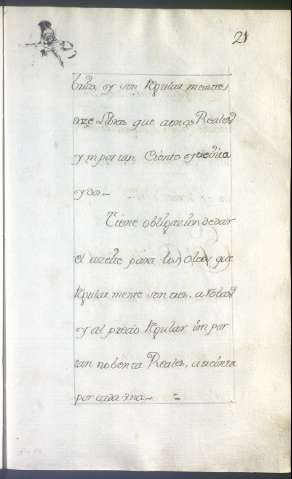 21
y son Regular mente
onze Libras que a Reales
y importan Ciento y treinta
y dos =
Tiene obligazion de dar
el azeite para los Oleos, que
Regular mente son tres, arrobas
y al precio Regular im por
tan nobenta Reales, a treinta
por cada Una =